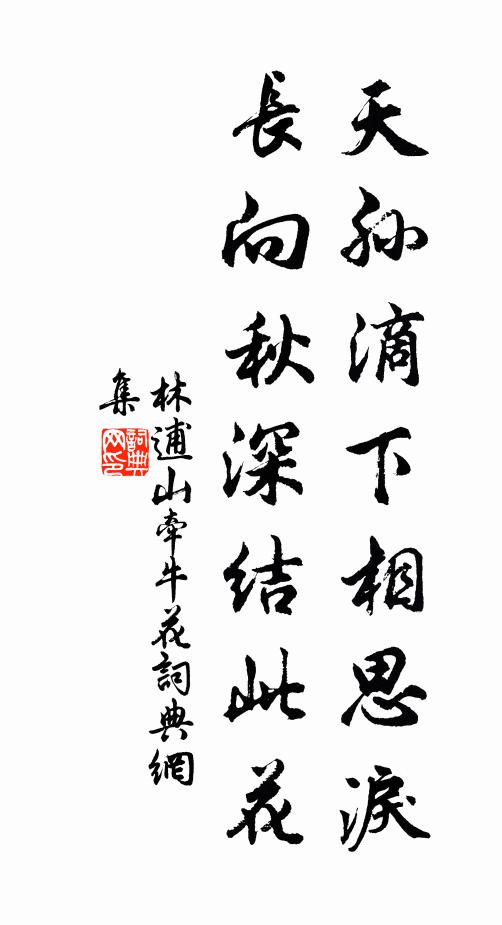 天孫滴下相思淚
長向秋深結此花
林逋山牽牛花詞典網
集
詞典
网印